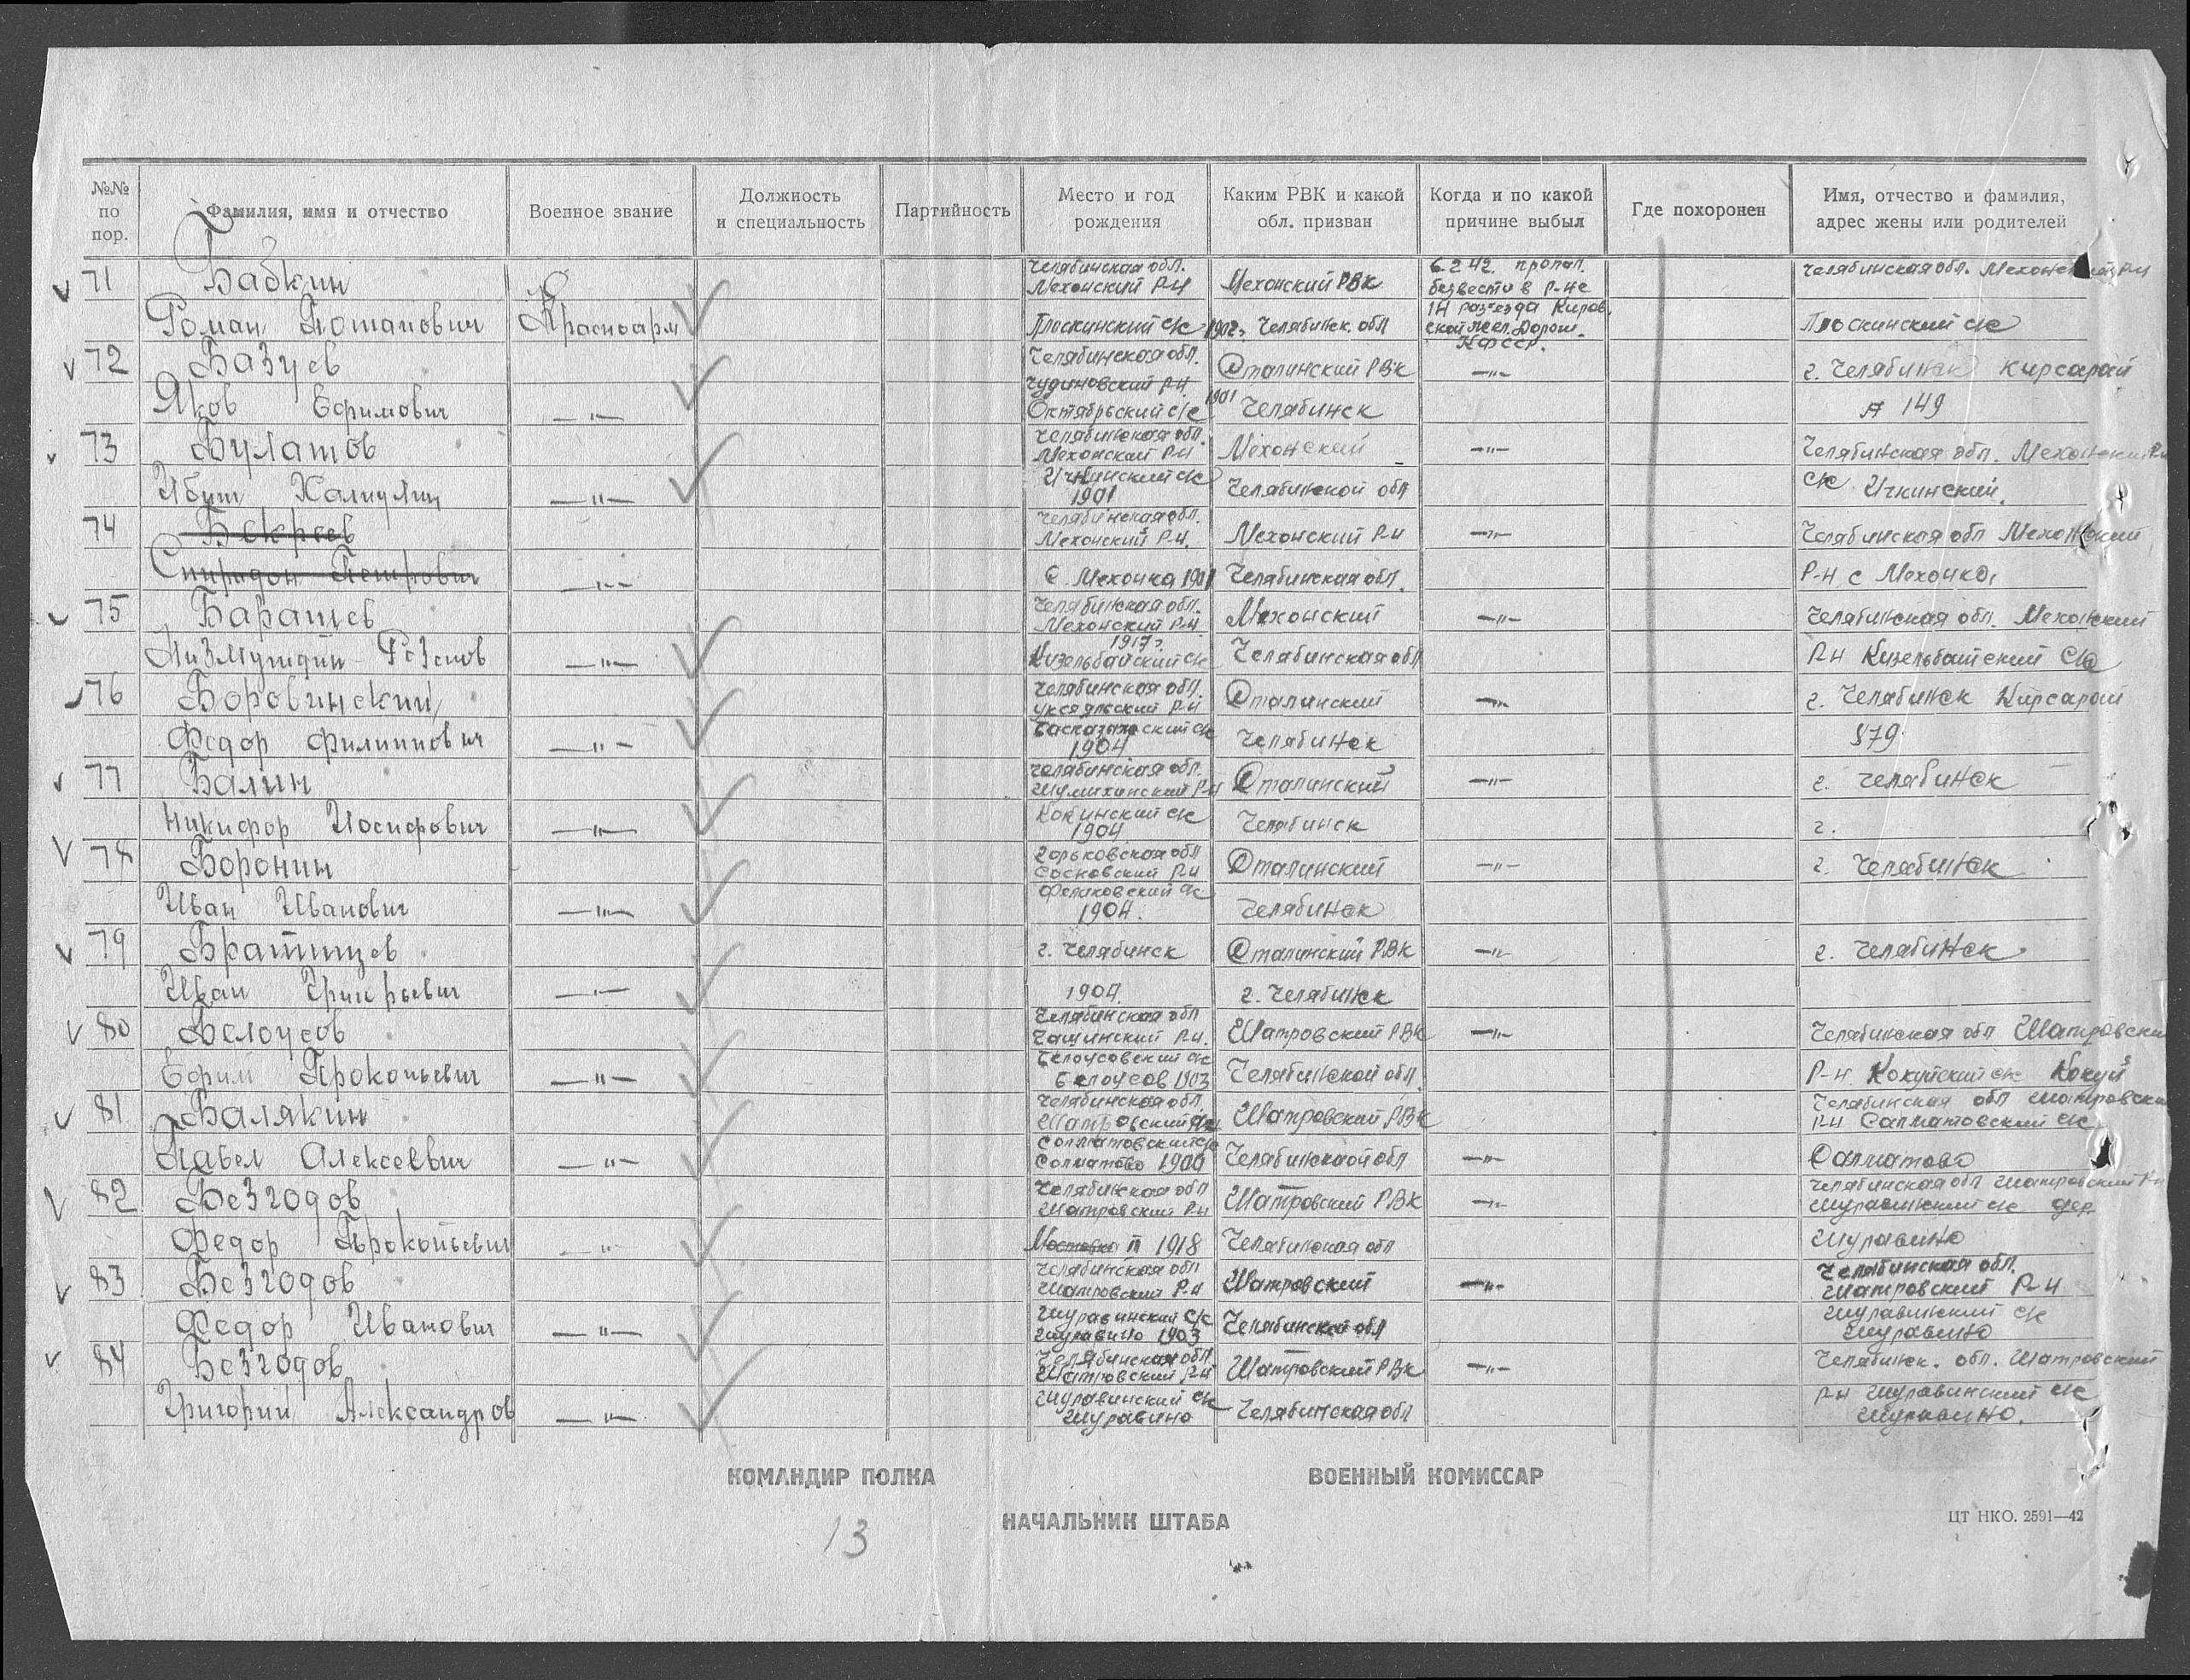 №№ по пор.
Фамилия, имя и отчество
Военное звание
Должность и специальность
Партийность
Место и год рождения
Каким РВК и какой обл. призван
Когда и по какой причине выбыл
Где похоронен
Имя, отчество и фамилия, адрес жены или родителей
71 Бабкин Челябинская обл. Мехонский Р-н Мехонский РВК 6.2.42. пропал. безвести в Р-не Челябинская обл. Р-н
Роман Потапович Красноарм Плоскинский с/с 1902г. Челябинск. обл 14 разъезда Киров. ской жел. Дорог. КФССР. Плоскинский с/с
72 Базуев Челябинская обл. Чудиновский Р-н. Сталинский РВК —"— г. Челябинск Кирсарай
Яков Ефимович —"— Октябрьский с/с 1901 Челябинск А 149
73 Булатов Челябинская обл. Мехонский Р-н Мехонский —"— Челябинская обл.
Ибуш —"— Ичкинский с/с 1901 Челябинской обл с/с Ичкинский.
74 Челябинская обл. Мехонский Р-н. Мехонский Р-н —"— Челябинская обл Мехонский
Спиридон Петрович —"— с. Мехонка 1901 Челябинская обл. Р-н с Мехонка,
75 Челябинская обл. Мехонский Р-н Мехонский —"— Челябинская обл. Мехонский
—"— 1917г. Кизельбайский с/с Челябинская обл Р-н с/с
76 Боровинский Челябинская обл. Уксянский Р-н Сталинский —"— г. Челябинск Кирсарай
Федор Филиппович —"— 1904 Челябинск 579
77 Балин Челябинская обл. Шумихинский Р-н Сталинский —"— г. Челябинск
Никифор Иосифович —"— с/с 1904 Челябинск г.
78 Боронин Горьковская обл Сосновский Р-н Сталинский —"— г. Челябинск
Иван Иванович —"— с/с 1904. Челябинск
79 г. Челябинск Сталинский РВК —"— г. Челябинск
Иван —"— 1904. г. Челябинск
80 Белоусов Челябинская обл Чашинский Р-н. Шатровский РВК —"— Челябинская обл
Ефим Прокопьевич —"— Белоусовский с/с Белоусов 1903 Челябинской обл. Р-н. Кокуйский с/с Кокуй
81 Балякин Челябинская обл. Шатровский РВК Челябинская обл Р-н Салматовский с/с
Павел Алексеевич —"— Солматовский с/с Солматово 1900 обл —"— Салматово
82 Безгодов Челябинская обл Шатровский Р-н Шатровский РВК —"— Челябинская обл Шатровский Р-н с/с дер.
Федор Прокопьевич —"— II 1918 Челябинская обл Шуравино
83 Безгодов Челябинская обл Шатровский Р-н Шатровский —"— Челябинская обл. Шатровский Р-н
Федор Иванович —"— Шуравинский с/с Шуравино 1903 Челябинской обл Шуравинский с/с Шуравино
84 Безгодов Челябинская обл Шатровский Р-н Шатровский РВК —"— Челябинск. обл. Шатровский
Григорий Александров —"— Шуравинский с/с Шуравино Челябинская обл Р-н Шуравинский с/с Шуравино.
КОМАНДИР ПОЛКА
ВОЕННЫЙ КОМИССАР
НАЧАЛЬНИК ШТАБА
ЦТ НКО. 2591—42
13